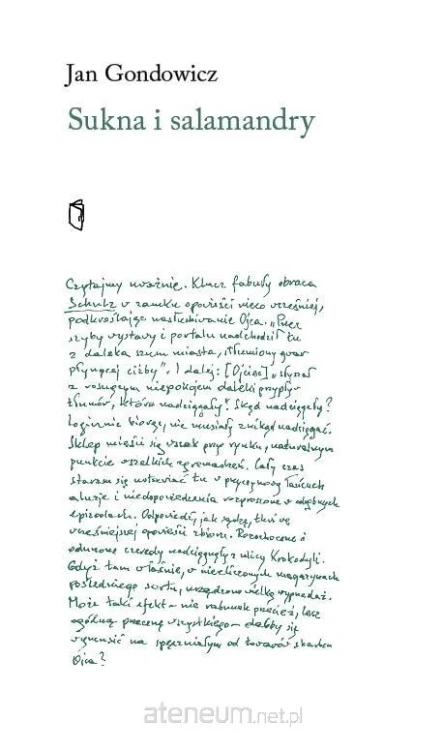 Jan Gondowicz
Sukna i salamandry
Czytajmy uważnie. Klucz fabuły obraca
Schulz w zamku opowieści nieco wcześniej,
podkreślając nasłuchiwanie Ojca. „Przez
szyby wystawy i portalu nadchodził tu
z daleka szum miasta, stłumiony gwar
płynącej ciżby”. I dalej: [Ojciec] „słyszał
z rosnącym niepokojem daleki przypływ
tłumów, które nadciągały”. Skąd nadciągały?
Logicznie biorąc, nie musiały znikąd nadciągać.
Sklep mieści się wszak przy rynku, naturalnym
punkcie wszelkich zgromadzeń. Cały czas
staram się ustawiać tu w przyczynowy łańcuch
aluzje i niedopowiedzenia rozproszone w odrębnych
epizodach. Odpowiedź, jak sądzę, tkwi we
wcześniejszej opowieści zbioru. Rozochocone i
odurzone czeredy nadciągnęły z ulicy Krokodyli.
Gdyż tam właśnie, w niezliczonych magazynach
pośledniego sortu, urządzono wielką wyprzedaż.
Może taki efekt – nie rabunek przecież, lecz
ogólną przecenę wszystkiego – dałby się
wymusić na spęczniałym od towarów skarbcu
Ojca?
ateneum.net.pl